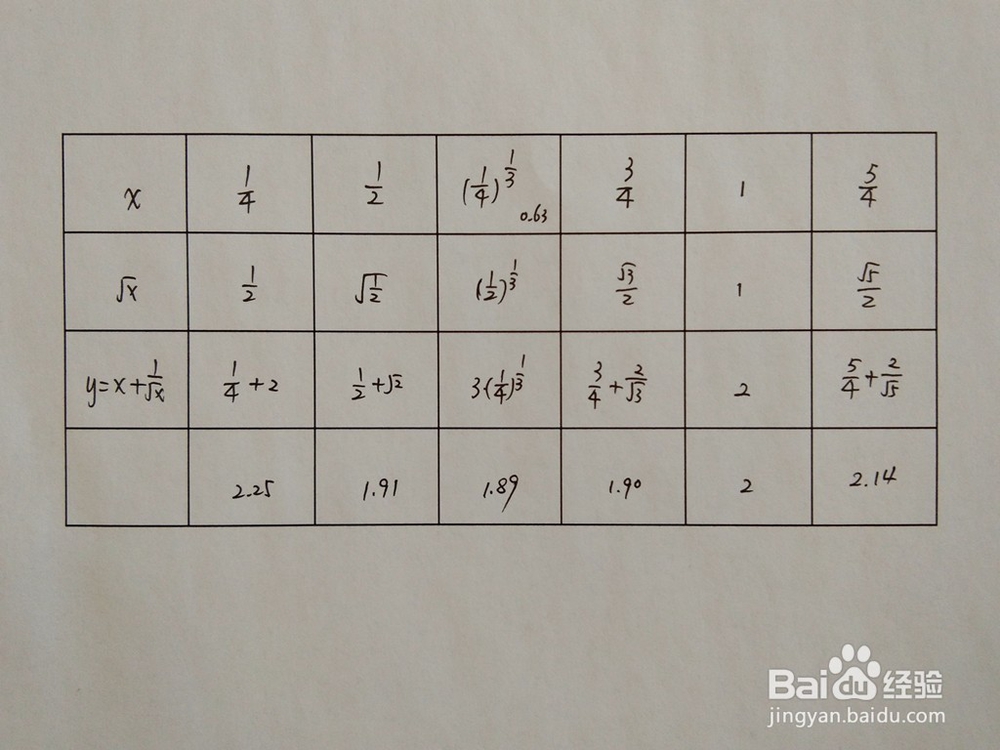 x 1/4 1/2 (1/4)^(1/3) 0.63 3/4 1 5/4
√x 1/2 √(1/2) (1/2)^(1/3) √3/2 1 √5/2
y=x+1/√x 1/4+2 1/2+√2 3(1/4)^(1/3) 3/4+2/√3 2 5/4+2/√5
2.25 1.91 1.89 1.90 2 2.14
Baidu经验
jingyan.baidu.com